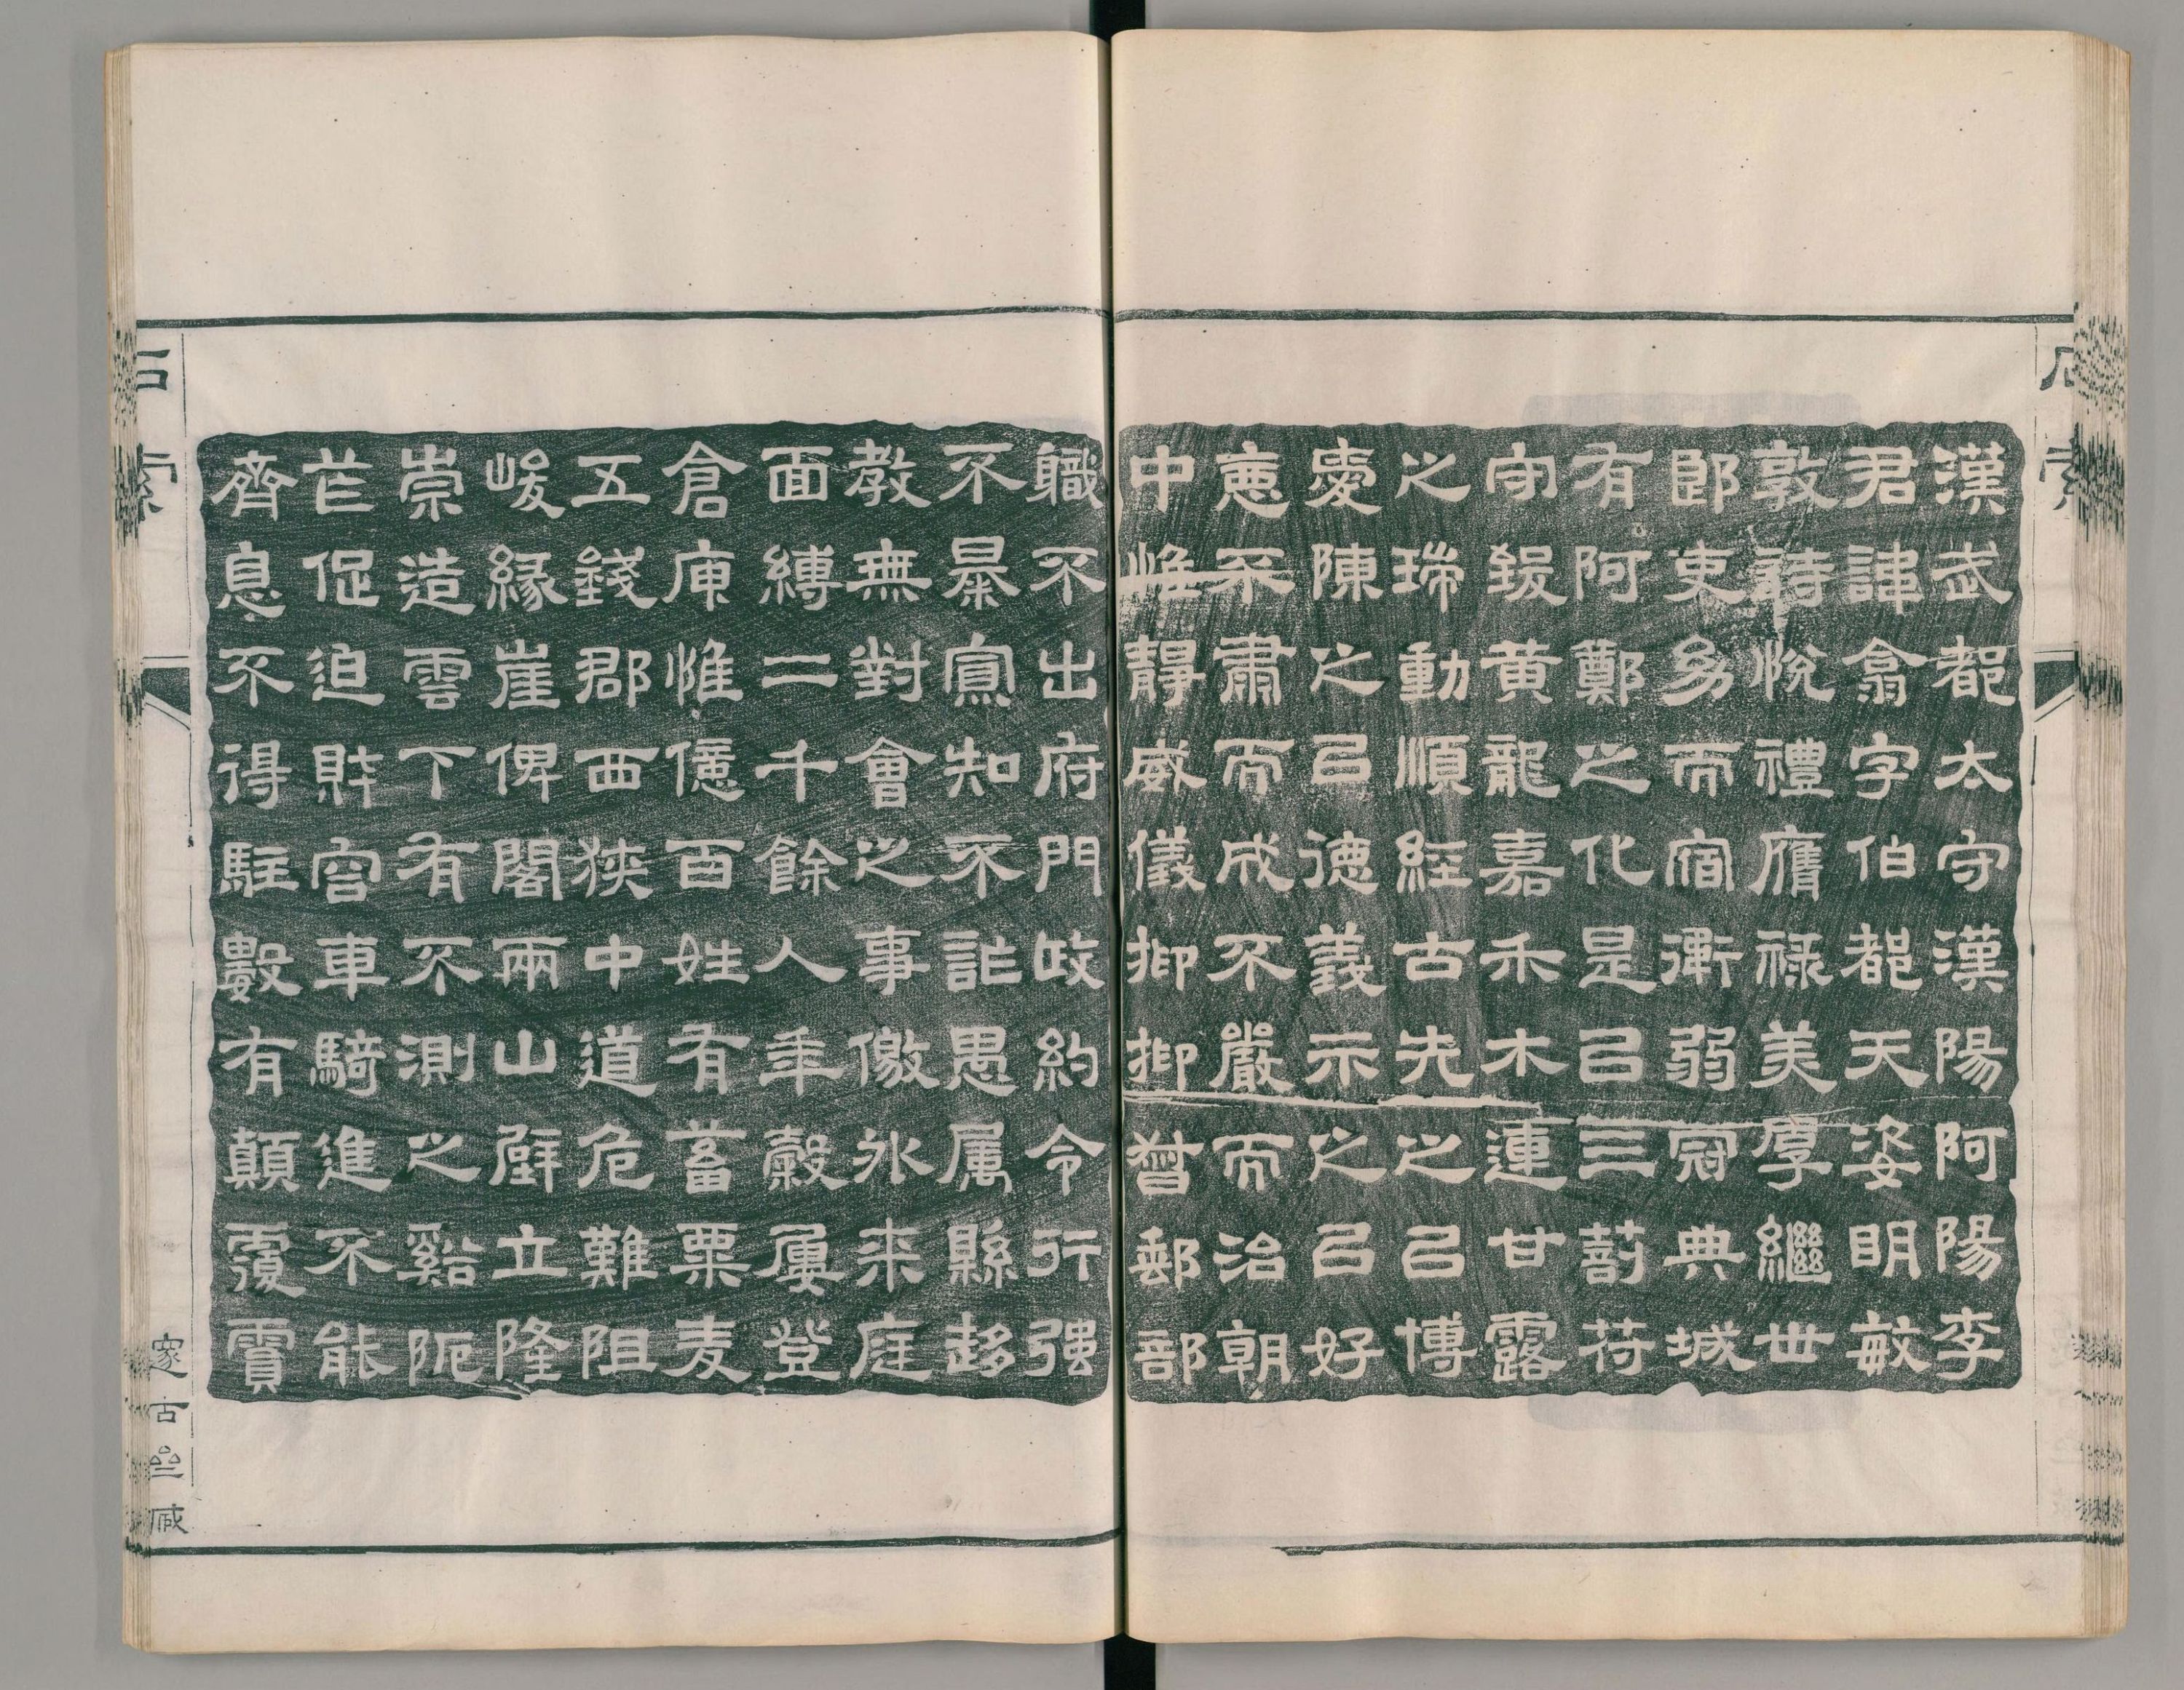 漢武都太守漢陽阿陽李
君諱翕字伯都天姿明敏
敦詩悅禮膺祿美厚繼世
郎吏幼而宿衛弱冠典城
有阿鄭之化是㠯三蒞符
守致黃龍嘉禾木連甘露
之瑞動順經古先之㠯博
愛陳之㠯德義示之㠯好
惡不肅而成不嚴而治朝
中惟靜威儀抑抑督郵部
職不出府門政約令行强
不暴寡知不詐愚屬縣趍
教無對會之事儌外來庭
面縛二千餘人年穀屢登
倉庾惟億百姓有蓄粟麦
五錢郡西狹中道危難阻
峻緣崖俾閣兩山壁立隆
崇造雲下有不測之谿阨
芒促迫財容車騎進不能
濟息不得駐數有顛覆霣
石索
石索
邃古齋藏